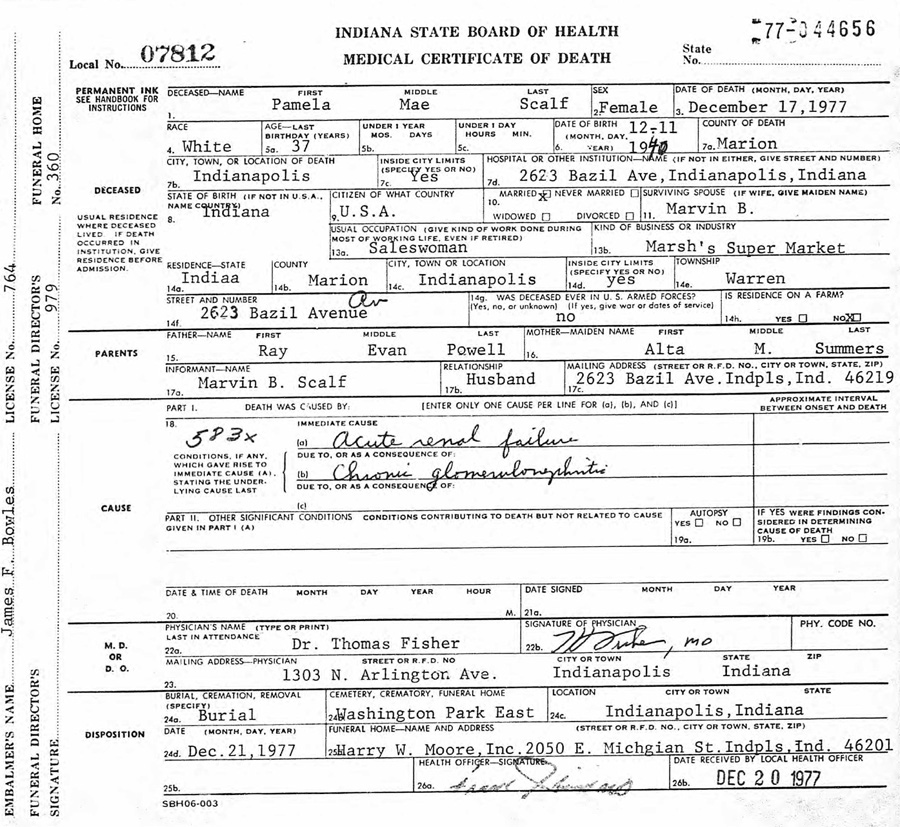 INDIANA STATE BOARD OF HEALTH
77-044656
Local No. 07812
MEDICAL CERTIFICATE OF DEATH
State No.
PERMANENT INK
SEE HANDBOOK FOR
INSTRUCTIONS
DECEASED—NAME FIRST MIDDLE LAST SEX DATE OF DEATH (MONTH, DAY, YEAR)
1. Pamela Mae Scalf 2. Female 3. December 17,1977
RACE AGE—LAST BIRTHDAY (YEARS) UNDER 1 YEAR MOS. DAYS UNDER 1 DAY HOURS MIN. DATE OF BIRTH (MONTH, DAY, YEAR) 12-11 COUNTY OF DEATH
4. White 5a. 37 5b. 5c. 6. 1940 7a. Marion
CITY, TOWN, OR LOCATION OF DEATH INSIDE CITY LIMITS (SPECIFY YES OR NO) HOSPITAL OR OTHER INSTITUTION—NAME (IF NOT IN EITHER, GIVE STREET AND NUMBER)
7b. Indianapolis 7c. Yes 7d. 2623 Bazil Ave,Indianapolis,Indiana
DECEASED
STATE OF BIRTH (IF NOT IN U.S.A., NAME COUNTRY) CITIZEN OF WHAT COUNTRY 10. MARRIED X NEVER MARRIED WIDOWED DIVORCED SURVIVING SPOUSE (IF WIFE, GIVE MAIDEN NAME)
8. Indiana 9. U.S.A. 11. Marvin B.
USUAL RESIDENCE
WHERE DECEASED
LIVED. IF DEATH
OCCURRED IN
INSTITUTION, GIVE
RESIDENCE BEFORE
ADMISSION.
USUAL OCCUPATION (GIVE KIND OF WORK DONE DURING MOST OF WORKING LIFE, EVEN IF RETIRED) KIND OF BUSINESS OR INDUSTRY
13a. Saleswoman 13b. Marsh's Super Market
RESIDENCE—STATE COUNTY CITY, TOWN OR LOCATION INSIDE CITY LIMITS (SPECIFY YES OR NO) TOWNSHIP
14a. Indiaa 14b. Marion 14c. Indianapolis 14d. yes 14e. Warren
STREET AND NUMBER 14g. WAS DECEASED EVER IN U.S. ARMED FORCES? (Yes, no, or unknown) (If yes, give war or dates of service) IS RESIDENCE ON A FARM?
14f. 2623 Bazil Avenue no 14h. YES NO X
PARENTS
FATHER—NAME FIRST MIDDLE LAST MOTHER—MAIDEN NAME FIRST MIDDLE LAST
15. Ray Evan Powell 16. Alta M. Summers
INFORMANT—NAME RELATIONSHIP MAILING ADDRESS (STREET OR R.F.D. NO., CITY OR TOWN, STATE, ZIP)
17a. Marvin B. Scalf 17b. Husband 17c. 2623 Bazil Ave.Indpls,Ind. 46219
PART I. DEATH WAS CAUSED BY: [ENTER ONLY ONE CAUSE PER LINE FOR (a), (b), AND (c)] APPROXIMATE INTERVAL BETWEEN ONSET AND DEATH
18. IMMEDIATE CAUSE
583x (a) Acute renal failure
DUE TO, OR AS A CONSEQUENCE OF:
CONDITIONS, IF ANY,
WHICH GAVE RISE TO
IMMEDIATE CAUSE (A),
STATING THE UNDER-
LYING CAUSE LAST
(b) Chronic glomerulonephritis
DUE TO, OR AS A CONSEQUENCE OF:
(c)
CAUSE
PART II. OTHER SIGNIFICANT CONDITIONS CONDITIONS CONTRIBUTING TO DEATH BUT NOT RELATED TO CAUSE GIVEN IN PART I (A)
AUTOPSY YES NO 19a.
IF YES WERE FINDINGS CONSIDERED IN DETERMINING CAUSE OF DEATH 19b. YES NO
DATE & TIME OF DEATH MONTH DAY YEAR HOUR DATE SIGNED MONTH DAY YEAR
20. M. 21a.
M. D.
OR
D. O.
PHYSICIAN'S NAME (TYPE OR PRINT) LAST IN ATTENDANCE SIGNATURE OF PHYSICIAN PHY. CODE NO.
22a. Dr. Thomas Fisher 22b. Fisher, MD
MAILING ADDRESS—PHYSICIAN STREET OR R.F.D. NO CITY OR TOWN STATE ZIP
23. 1303 N. Arlington Ave. Indianapolis Indiana
DISPOSITION
BURIAL, CREMATION, REMOVAL (SPECIFY) CEMETERY, CREMATORY, FUNERAL HOME LOCATION CITY OR TOWN STATE
24a. Burial 24b. Washington Park East 24c. Indianapolis,Indiana
DATE (MONTH, DAY, YEAR) FUNERAL HOME—NAME AND ADDRESS (STREET OR R.F.D. NO., CITY OR TOWN, STATE, ZIP)
24d. Dec.21,1977 25a. Harry W. Moore,Inc.2050 E. Michgian St.Indpls,Ind. 46201
HEALTH OFFICER—SIGNATURE DATE RECEIVED BY LOCAL HEALTH OFFICER
25b. 26a. 26b. DEC 20 1977
SBH06-003
EMBALMER'S NAME James F. Bowles LICENSE No. 764
FUNERAL DIRECTOR'S SIGNATURE FUNERAL DIRECTOR'S LICENSE No. 979 FUNERAL HOME No. 360